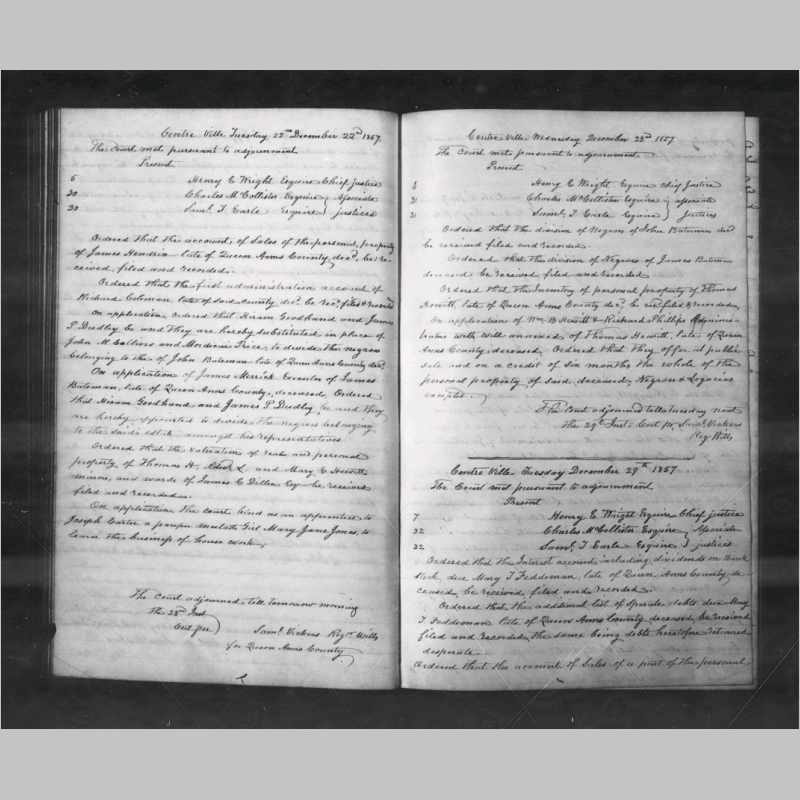 Centre Ville Tuesday 22nd December 22d 1857.
The Court met pursuant to adjournment
Present
6 Henry E Wright Esquire Chief justice
20 Charles McCollister Esquire } Associate
20 Saml. T. Earle Esquire } justices
Ordered that the account of Sales of the personal property
of James Hendrix late of Queen Anns County decd. be re-
ceived filed and recorded.
Ordered that the first administration account of
Richard Coleman late of said County decd. be recd. filed & recorded
On application ordered that Hiram Goodhand and James
P. Dudley be and they are hereby substituted in place of
John M Collins and Mordecai Price, to divide the negroes
belonging to the of John Bateman late of Queen Anns County decd.
On application of James Merrick Executor of James
Bateman, late of Queen Anns County, deceased, Ordered
that Hiram Goodhand and James P. Dudley be and they
are hereby appointed to divide the negroes belonging
to the said estate amongst his representatives
Ordered that the valuations of real and personal
property of Thomas H. and Mary E Hewitt
minors, and wards of James E Dillen Esq. be received
filed and recorded.
On application the Court bind as an apprentice to
Joseph Carter a pauper mulatto Girl Mary Jane Jones, to
learn the business of house work.
The Court adjourned till tomorrow morning
The 23d Inst
Cert per } Saml. Vickers Regr. Wills
for Queen Anns County.
Centre Ville Wednesday December 23d 1857
The Court met pursuant to adjournment
Present
Henry E Wright Esquire Chief Justice
21 Charles McCollister Esquire } associate
21 Saml. T Earle Esquire } justices
Ordered that the division of Negroes of John Bateman decd
be received filed and recorded.
Ordered that the division of Negroes of James Bateman
deceased be received filed and recorded
Ordered that the Inventory of personal property of Thomas
Hewitt, late of Queen Anns County decd. be recd. filed & recorded,
On application of Wm. B Hewitt & Richard Phillips Adminis-
trators with will annexed of Thomas Hewitt, late of Queen
Anns County deceased, Ordered that they offer at public
sale and on a credit of six months the whole of the
personal property of said deceased, Negroes & Legacies
excepted.
The Court adjourned till Tuesday next
the 29th Inst. Cert pr. Saml. Vickers
Reg Wills
Centre Ville Tuesday December 29th 1857
The Court met pursuant to adjournment
Present
7 Henry E. Wright Esquire Chief justice
22 Charles McCollister Esquire } Associate
22 Saml. T Earle Esquire } justices
Ordered that the Interest account, including dividends on Bank
stock, due Mary T Feddeman, late of Queen Anns County de-
ceased, be received, filed and recorded.
Ordered that the additional list of Sperate debts due Mary
T Feddeman late of Queen Anns County deceased, be received
filed and recorded, the same being debts heretofore returned
desperate.
Ordered that the account of Sales of a part of the personal